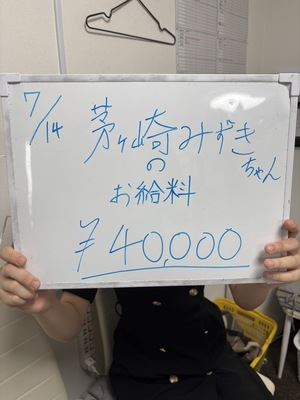 7/14
茅ヶ崎みずき
ちゃん
の
お給料
¥40,000